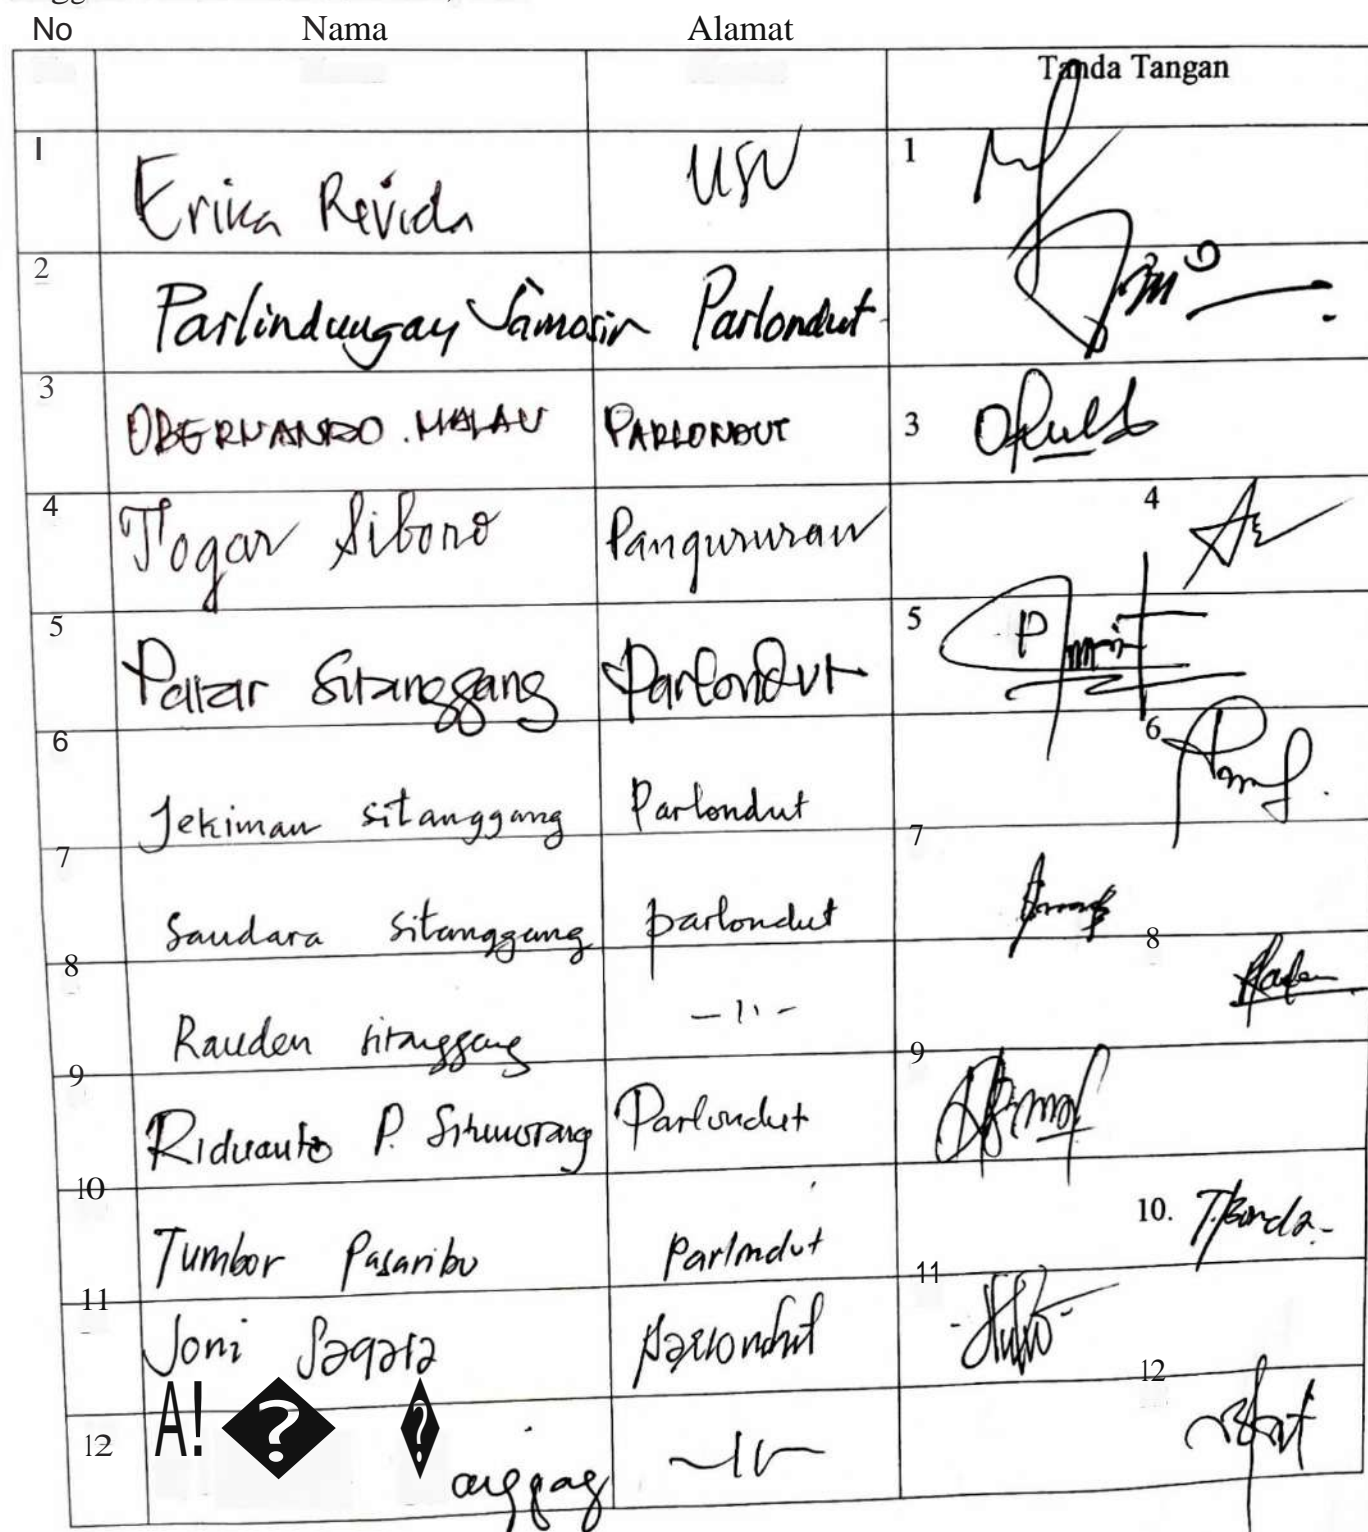 No Nama Alamat
Tanda Tangan
1 Erika Revida USU 1
2 Parlindungan Samosir Parlondut
3 OBERNANDO . MALAU PARLONDUT 3
4 Togar Siboro Pangururan 4
5 Patar Sitanggang Parlondut 5
6 Jekiman sitanggang Parlondut 6
7 Saudara sitanggang parlondut 7
8 Rauden sitanggang -11- 8
9 Riduanto P. Situmorang Parlondut 9
10 Tumbor Pasaribu Parlondut 10.
11 Joni Sagala parlondut 11
12 A! � � anggag -11- 12